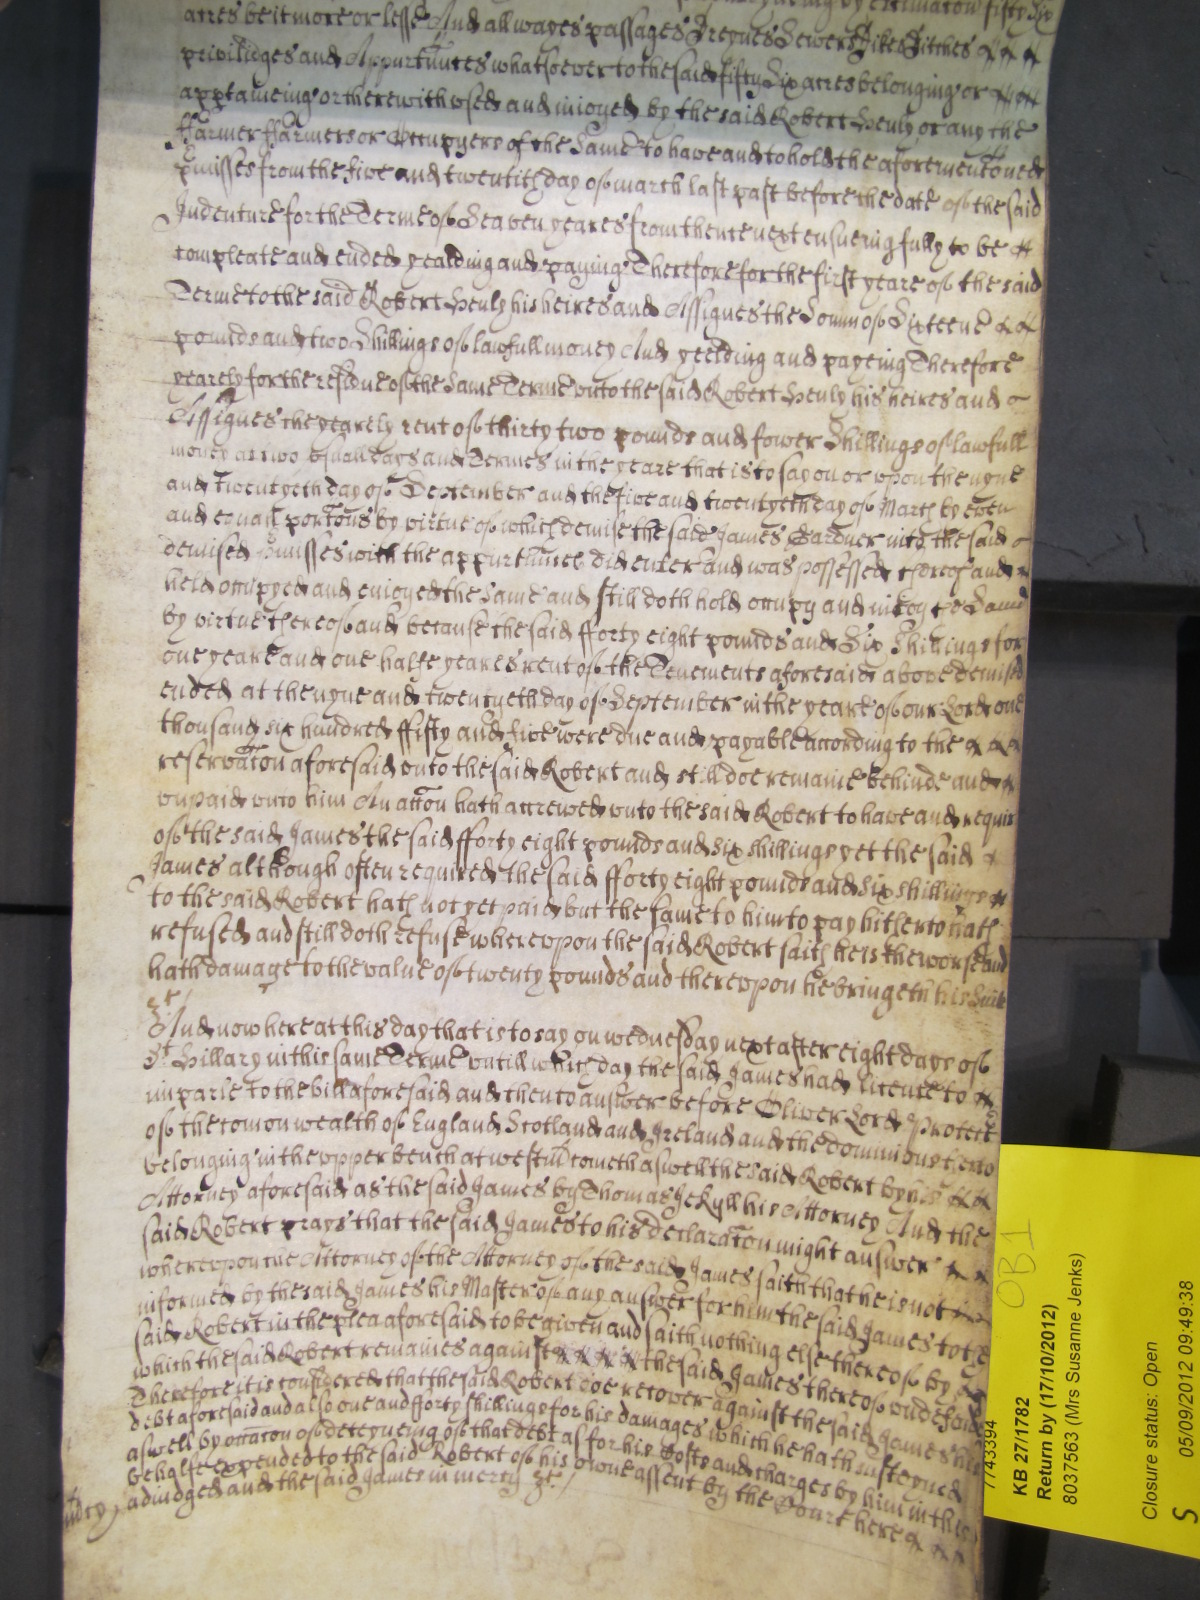 acres be it more or lesse And all wayes passages Dreynes Sewers Dikes Ditches
priviledges and Appurtunces whatsoever to the said fifty Six acres belonging or
apptaineing or therewith used and inioyed by the said Robert Henly or any the
ffarmer ffarmers or Occupyers of the Same to have and to hold the aforementoned
pmisses from the five and twentith day of march last past before the date of the said
Indenture for the Terme of Seaven yeares from thence next ensueing fully to be
compleate and ended yealding and paying Therefore for the first yeare of the said
Terme to the said Robert Henly his heires and Assignes the Somm of Sixteene
pounds and two Shillings of lawfull money And yeelding and payeing Therefore
yearely for the residue of the Same Terme unto the said Robert Henly his heires and
Assignes the yearely rent of thirty two pounds and fower Shillings of lawfull
money at two equall dayes and Termes in the yeare that is to say on or upon the nyne
and twentyeth day of September and the five and twentyeth day of March by even
and equall portons by virtue of which demise the said James Gardner into the said
demised pmisses with the appurtunces did enter and was possessed thereof and
held occupyed and enioyed the Same and still doth hold occupy and inioy the Same
by virtue thereof and because the said fforty eight pounds and Six Shillings for
one yeare and one halfe yeares rent of the Tenements aforesaid above demised
ended at the nyne and twentyeth day of September in the yeare of our Lord one
thousand six hundred ffifty and five were due and payable according to the
reservaton aforesaid unto the said Robert and still doe remaine behinde and
unpaid unto him An acton hath accrewed unto the said Robert to have and require
of the said James the said fforty eight pounds and six shillings yet the said
James although often required the said fforty eight pounds and six shillings
to the said Robert hath not yet paid but the same to him to pay hitherto hath
refused and still doth refuse whereupon the said Robert saith he is the worse and
hath damage to the value of twenty pounds and thereupon he bringeth his Suite
&c
And now here at this day that is to say on wednesday next after eight dayes of
St Hillary in this same Terme untill which day the said James had licence to
imparle to the bill aforesaid and then to answer before Oliver Lord Protector
of the comonwealth of England Scotland and Ireland and the dominions thereto
belonging in the upper bench at westm cometh aswell the said Robert by his
Attorney aforesaid as the said James by Thomas Jekyll his Attorney And the
said Robert prays that the said James to his declaraton might answer
whereupon the Attorney of the Attorney of the said James saith that he is not
informed by the said James his Master of any answer for him the said James to the
said Robert in the plea aforesaid to be given and saith nothing else thereof by
which the said Robert remaines against the said James thereof undefended
Therefore it is considered that the said Robert doe recover against the said James his
debt aforesaid and also one and fforty shillings for his damages which he hath susteyned
aswell by occaton of deteyneing of that debt as for his Costs and charges by him in this
behalfe expended to the said Robert of his owne assent by the Court here
adiudged and the said James in mercy &c
7743394
KB 27/1782
Return by (17/10/2012)
8037563 (Mrs Susanne Jenks)
OB1
Closure status: Open
S 05/09/2012 09:49:38